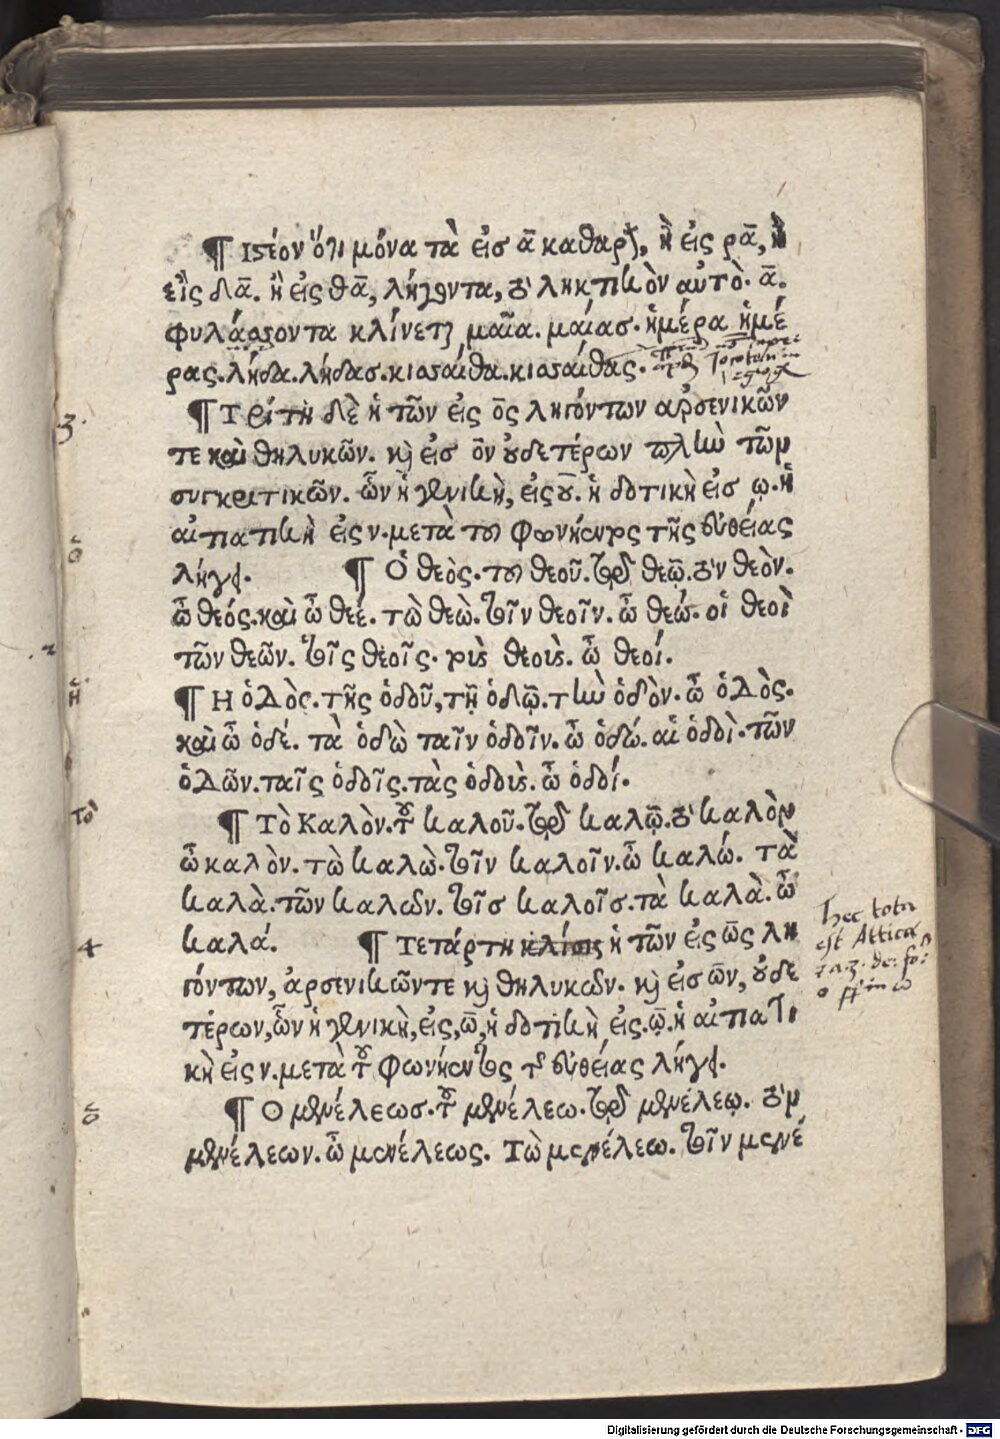 ¶ Ιϛέον ὅτι μόνα τὰ εἰσ ᾱ καθαρὸν, ἢ εἰς ρᾱ, ἢ
εἰς δᾱ. ἢ εἰς θᾱ, λήγοντα, τὸ ληκτικὸν αὐτὸ. ᾱ.
φυλάσσοντα κλίνεται μαῖα. μαίασ. ἡμέρα ἡμέ
ρας. λήδα. λήδασ. κισσαίθα. κισσαίθας.
3.
¶ Τρίτη δὲ ἡ τῶν εἰς ο̄ς ληγόντων ἀρσενικῶν
τε καὶ θηλυκῶν. καὶ εἰσ ο̄ν ȣδετέρων πλὴν τῶν
συγκριτικῶν. ὧν ἡ γενικὴ, εἰς ȣ̄. ἡ δοτικὴ εἰσ ῳ. ἡ
αἰτιατικὴ εἰς ν. μετὰ τοῦ φωνήεντος τῆς εὐθείας
λήγει. ¶ Ὁ θεὸς. τοῦ θεοῦ. τῷ θεῷ. τὸν θεὸν.
ὁ
ὦ θεός. καὶ ὦ θεέ. τὼ θεὼ. τοῖν θεοῖν. ὦ θεώ. οἱ θεοὶ
τῶν θεῶν. τοῖς θεοῖς. τοὺς θεοὺς. ὦ θεοί.
ἡ
¶ Η ὁδὸς. τῆς ὁδοῦ, τῇ ὁδῷ. τὴν ὁδὸν. ὦ ὁδὸς.
καὶ ὦ ὁδέ. τὰ ὁδὼ ταῖν ὁδοῖν. ὦ ὁδώ. αἱ ὁδοὶ. τῶν
ὁδῶν. ταῖς ὁδοῖς. τὰς ὁδοὺς. ὦ ὁδοί.
τὸ
¶ Τὸ Καλὸν. τοῦ καλοῦ. τῷ καλῷ. τὸ καλὸν
ὦ καλὸν. τὼ καλὼ. τοῖν καλοῖν. ὦ καλώ. τὰ
καλὰ. τῶν καλων. τοῖσ καλοῖσ. τὰ καλὰ. ὦ
4
καλά. ¶ Τετάρτη κλίσις ἡ τῶν εἰς ω̄ς λη
γόντων, ἀρσενικῶν τε καὶ θηλυκων. καὶ εἰσ ω̄ν, ȣδε
τέρων, ὧν ἡ γενικὴ, εἰς, ω̄, ἡ δοτικὴ εἰς. ῳ̄. ἡ αἰτιατι
κὴ εἰς ν. μετὰ τοῦ φωνήεντος τῆς εὐθείας λήγει.
ὁ
¶ Ο μενέλεωσ. τοῦ μενέλεω. τῷ μενέλεῳ. τὸν
μενέλεων. ὦ μενέλεως. Τὼ μενέλεω. τοῖν μενέ
hec tota
est Attica
Digitalisierung gefördert durch die Deutsche Forschungsgemeinschaft - DFG